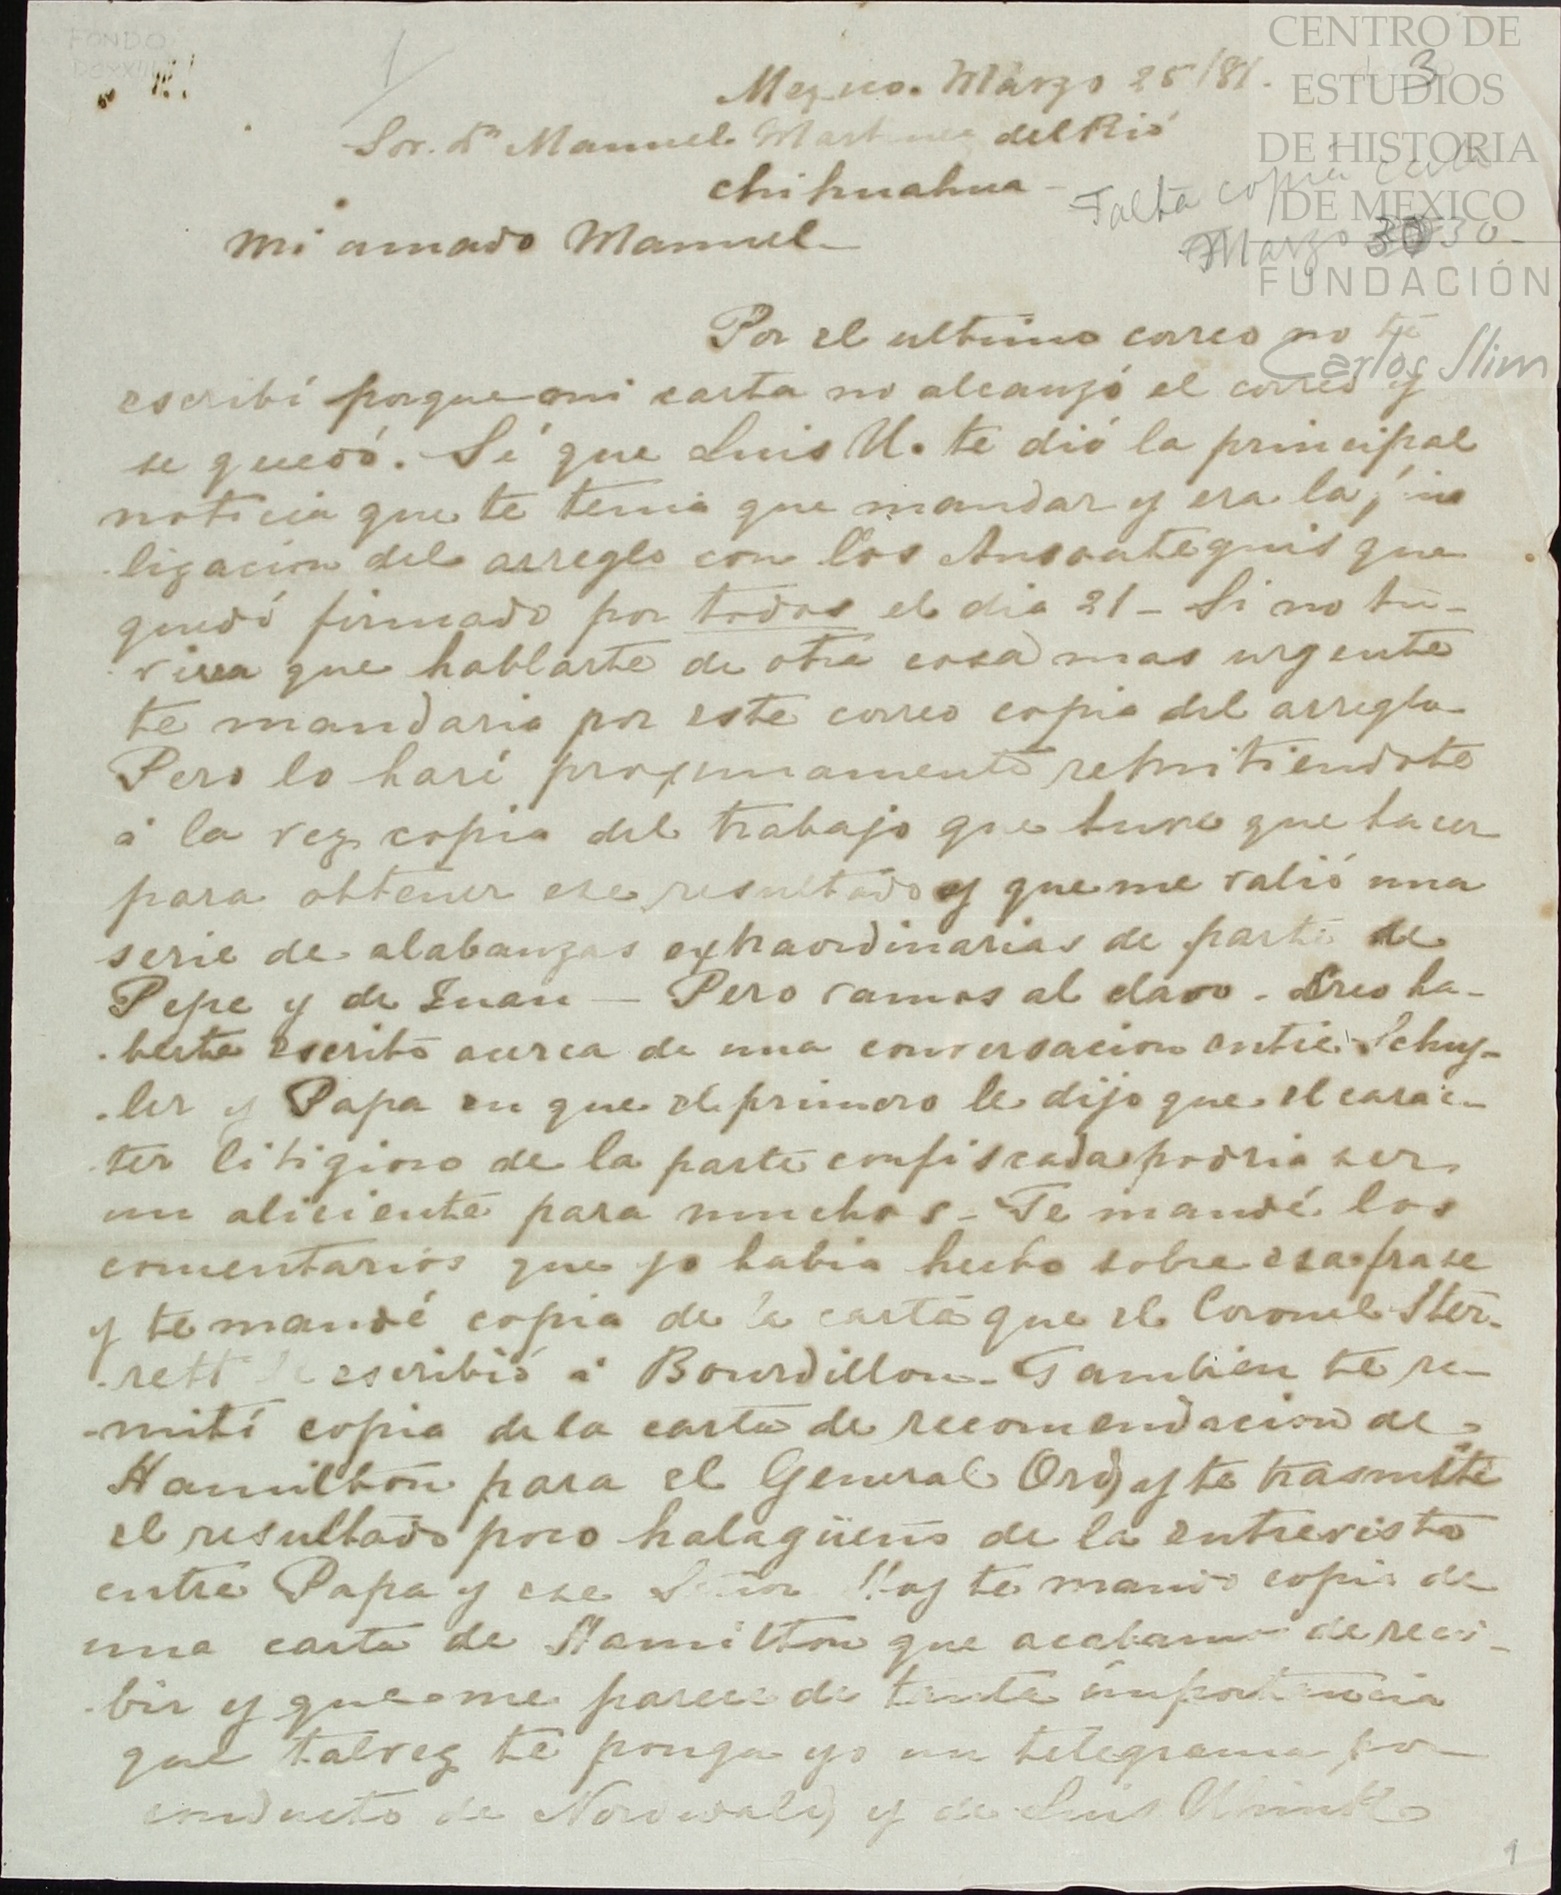 FONDO
1
CENTRO DE
ESTUDIOS
DE HISTORIA
DE MEXICO
FUNDACIÓN
Carlos Slim
3
Mexico. Marzo 25/81.
Sor. Dn Manuel Martinez del Rio
Chihuahua -
Falta copia carta
Marzo 30 30-
Mi amado Manuel
Por el ultimo correo no te
escribí porque mi carta no alcanzó el correo y
se quedó. Sé que Luis U. te dió la principal
noticia que te tenia que mandar y era la
ligacion del arreglo con los Ansoateguis que
quedó firmado por todos el dia 21 - Si no tu-
viera que hablarte de otra cosa mas urgente
te mandaria por este correo copia del arreglo
Pero lo haré proximamente remitiendote
á la vez copia del trabajo que tuve que hacer
para obtener ese resultado y que me valió una
serie de alabanzas extraordinarias de parte de
Pepe y de Juan — Pero vamos al clavo - Creo ha-
berte escrito acerca de una conversacion entre Schuy-
ler y Papa en que el primero le dijo que el carac-
ter litigioso de la parte confiscada podria ser
un aliciente para muchos - Te mandé los
comentarios que yo habia hecho sobre esa frase
y te mandé copia de la carta que el Coronel Ster-
rett le escribió á Bourdillon - Tambien te re-
mití copia de la carta de recomendacion de
Hamilton para el General Ord y te trasmití
el resultado poco halagüeño de la entrevista
entre Papa y ese Señor Hoy te mando copia de
una carta de Hamilton que acabamos de reci-
bir y que me parece de tanta importancia
que talvez te ponga yo un telegrama por
conducto de Nordwald y de Luis
1